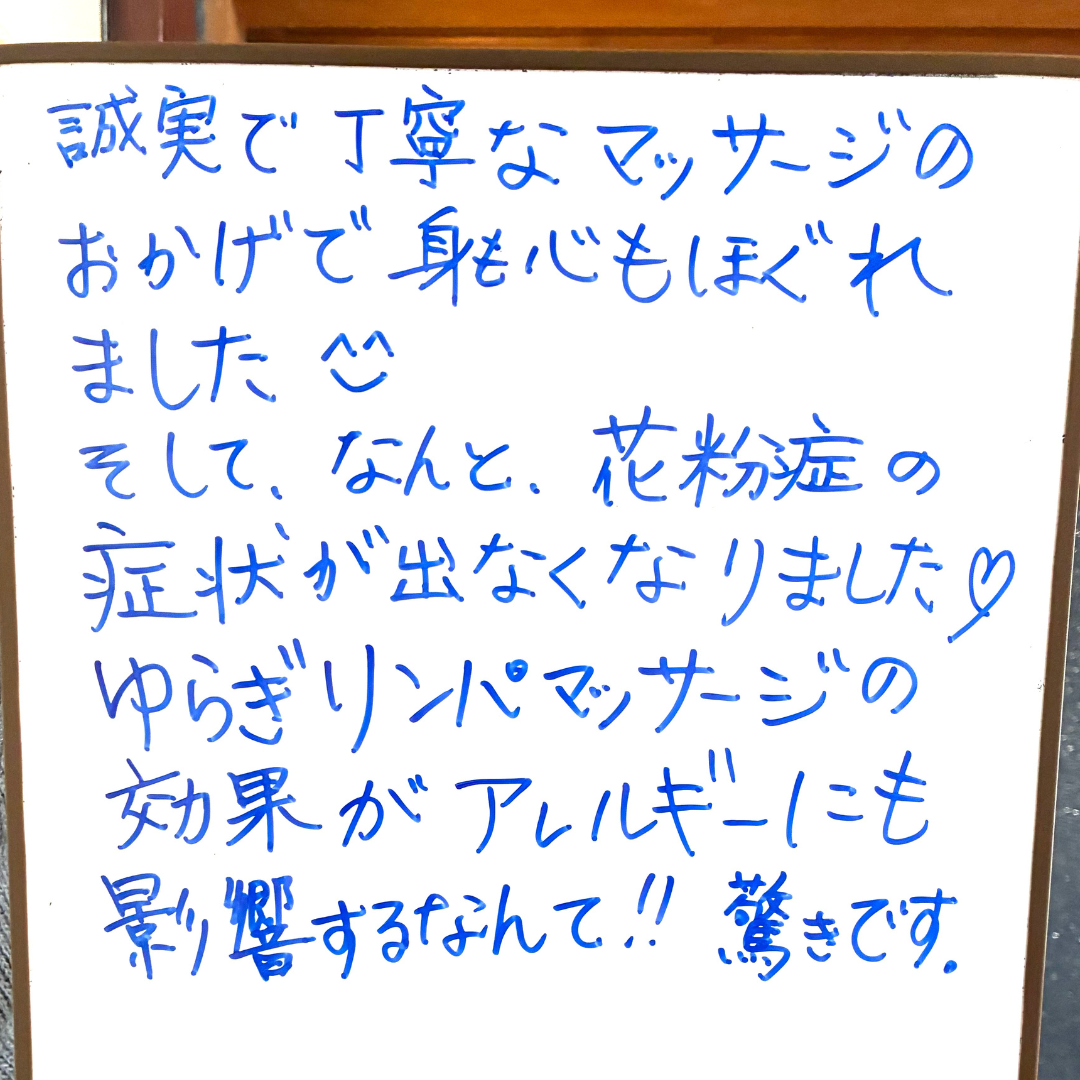 誠実で丁寧なマッサージの
おかげで身も心もほぐれ
ました ^^
そして、なんと、花粉症の
症状が出なくなりました♡
ゆらぎリンパマッサージの
効果がアレルギーにも
影響するなんて!! 驚きです。